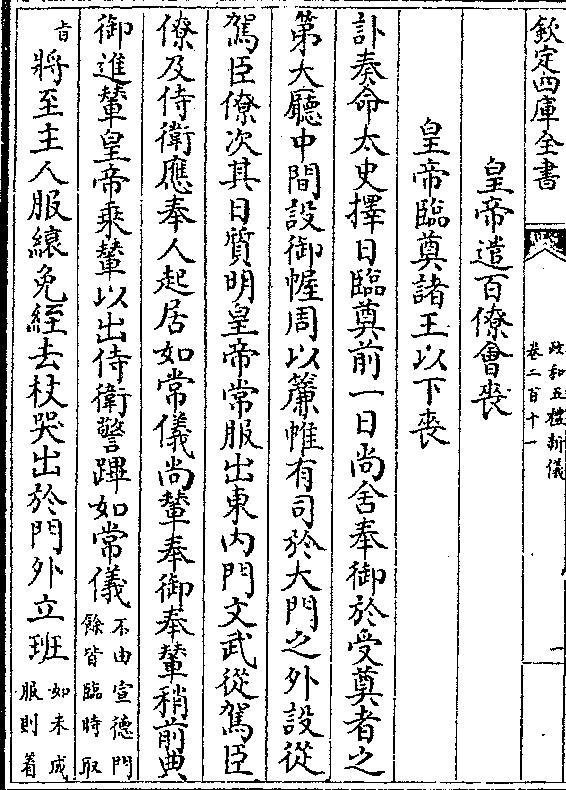 欽定四庫全書
政和五禮新儀
卷二百十一
一
皇帝遣百僚會喪
皇帝臨奠諸王以下喪
訃奏命太史擇日臨奠前一日尚舍奉御於受奠者之
第大廳中間設御幄周以簾帷有司於大門之外設從
駕臣僚次其日質明皇帝常服出東内門文武從駕臣
僚及侍衛應奉人起居如常儀尚輦奉御奉輦稍前典
御進輦皇帝乘輦以出侍衛警蹕如常儀不由宣德門
餘皆臨時取
旨將至主人服縗免絰去杖哭出於門外立班如未成
服則着